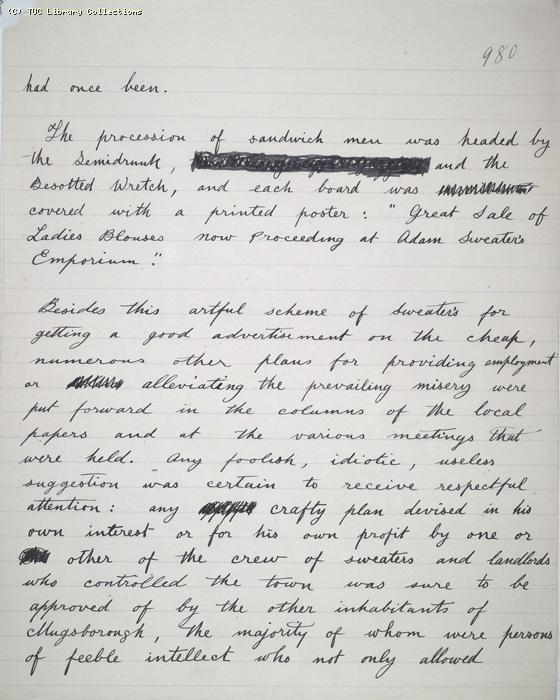 (C) TUC Library Collections
980
had once been.
The procession of sandwich men was headed by
the Semidrunk, and the
Besotted Wretch, and each board was
covered with a printed poster: "Great Sale of
Ladies Blouses now Proceeding at Adam Sweater's
Emporium."
Besides this artful scheme of Sweater's for
getting a good advertisement on the cheap,
numerous other plans for providing employment
or alleviating the prevailing misery were
put forward in the columns of the local
papers and at the various meetings that
were held. Any foolish, idiotic, useless
suggestion was certain to receive respectful
attention: any crafty plan devised in his
own interest or for his own profit by one or
other of the crew of sweaters and landlords
who controlled the town was sure to be
approved of by the other inhabitants of
Mugsborough, the majority of whom were persons
of feeble intellect who not only allowed